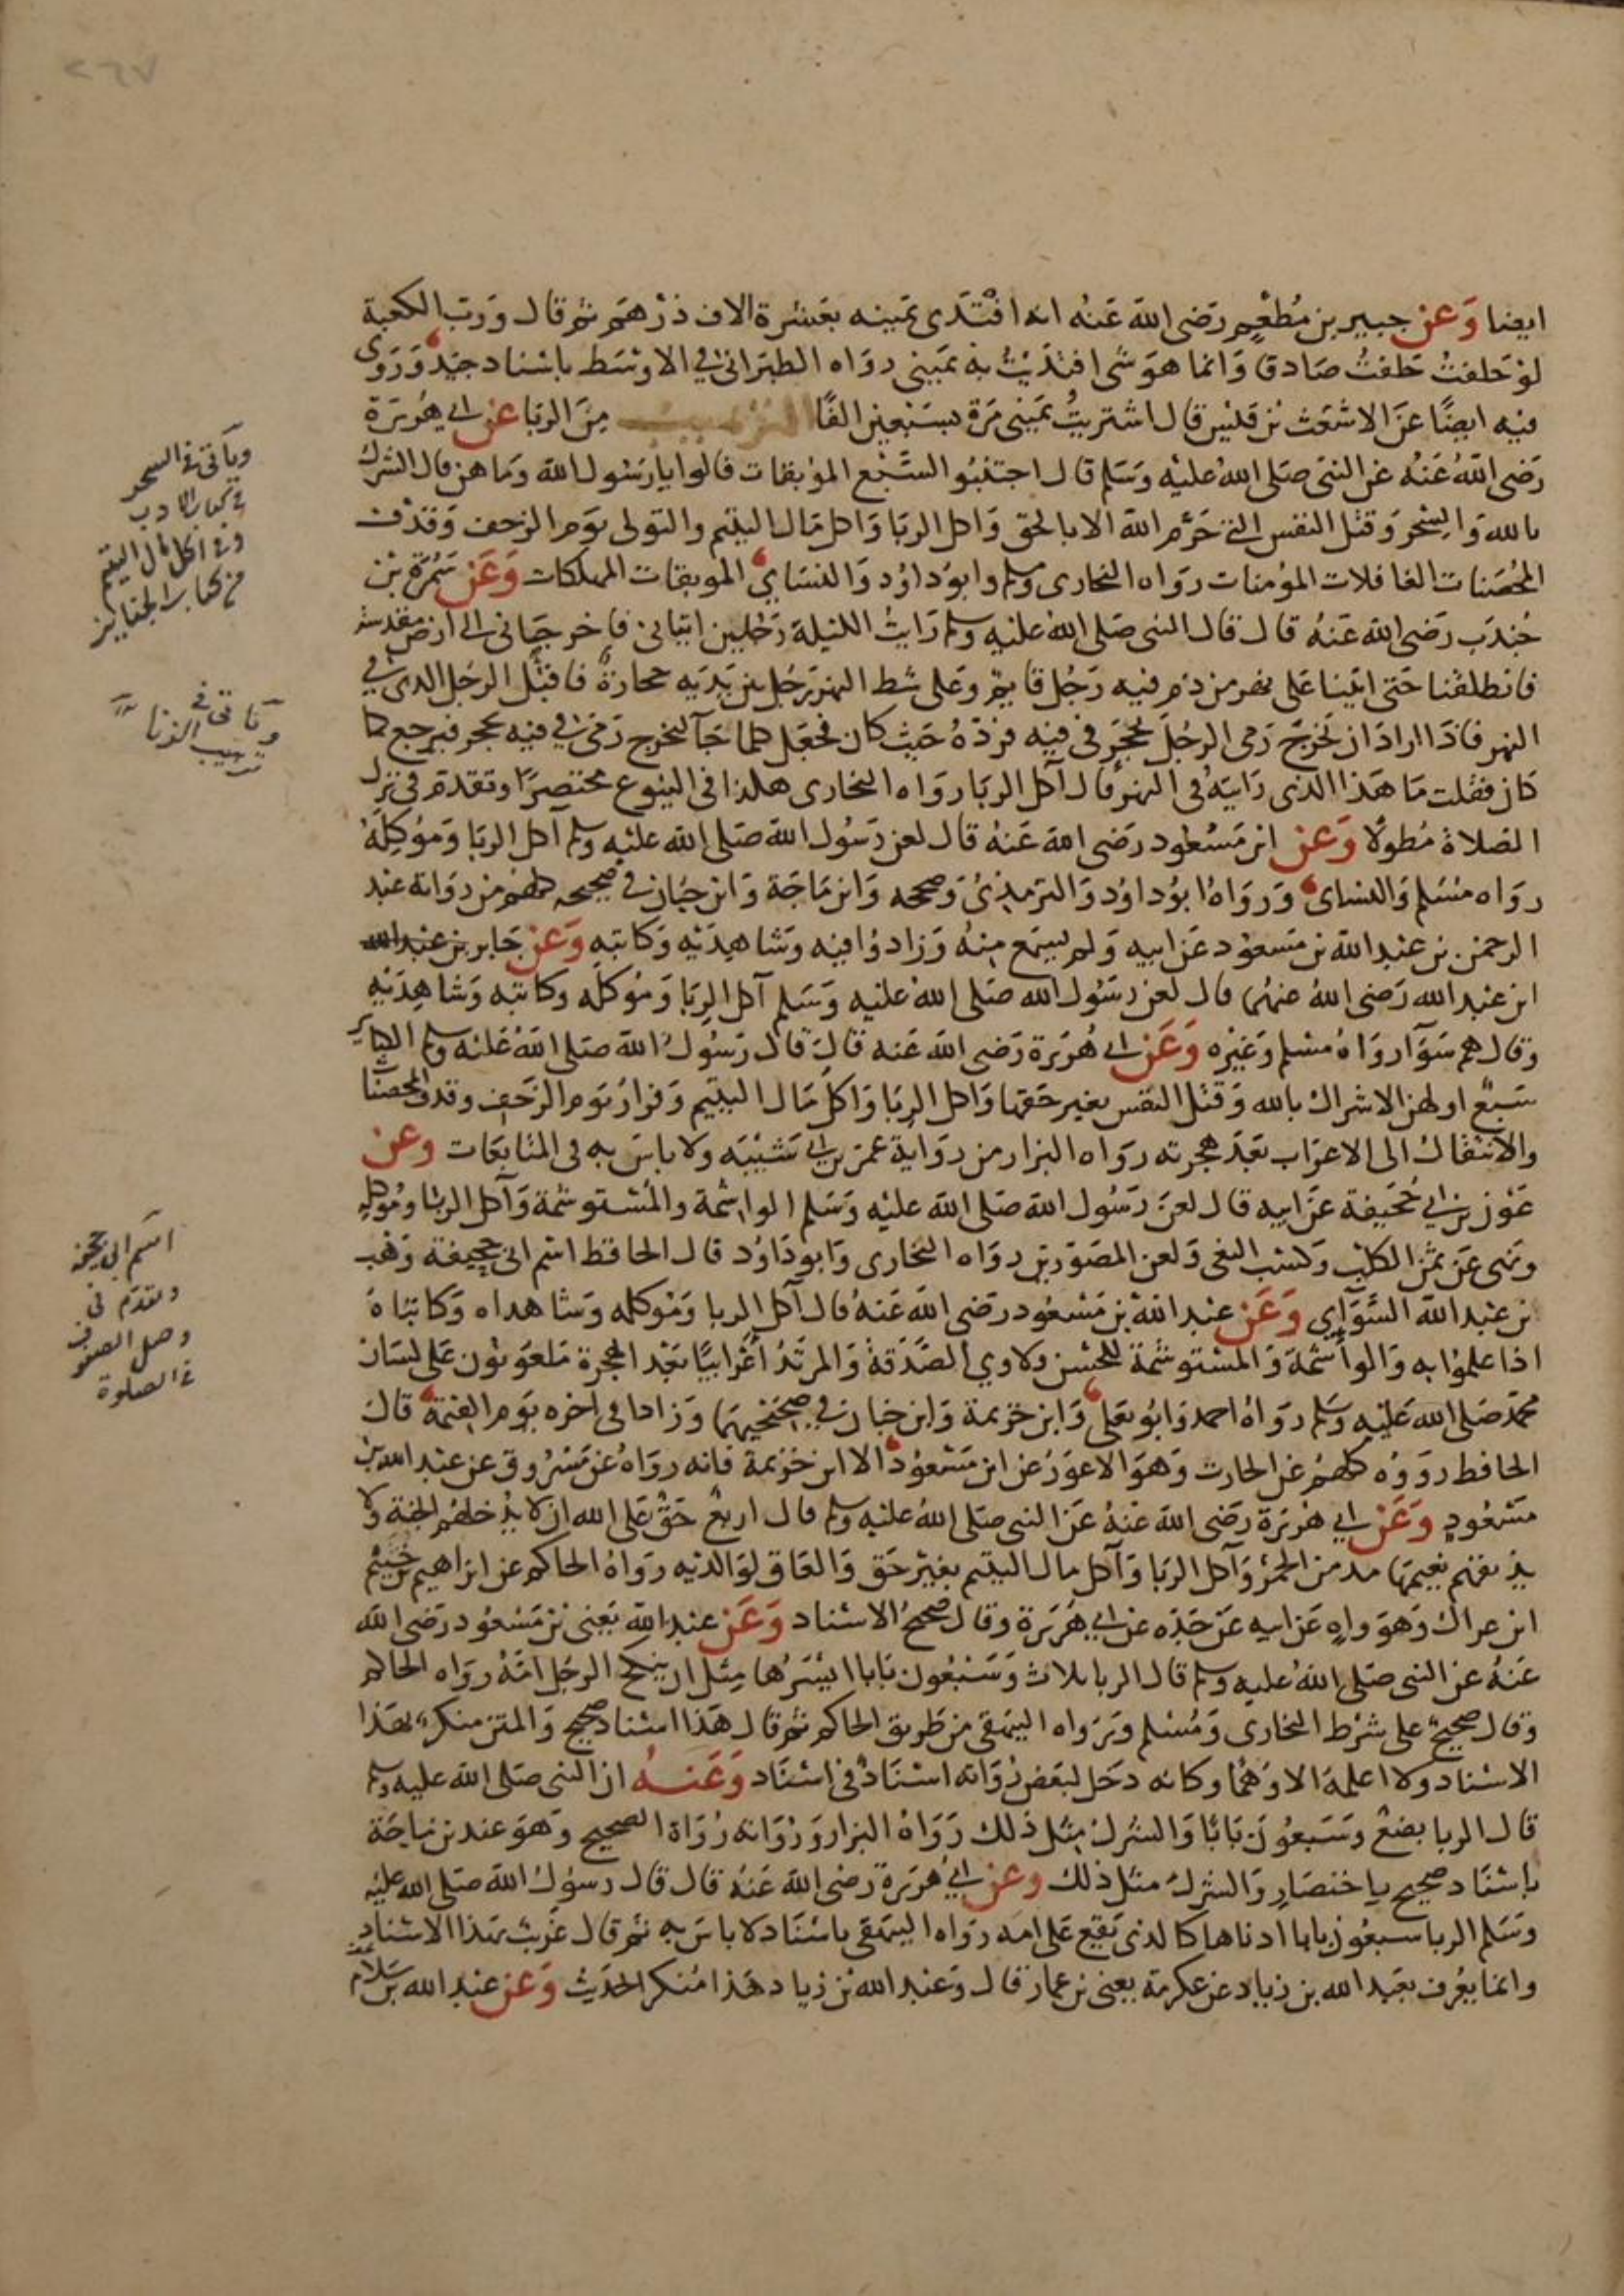 ٢٦٧
ايضا وَعَن جبير بن مُطْعِمٍ رَضى اللهُ عَنهُ انه افْتَدَى يمينه بعَشرة الاف درْهَم ثم قال وَرَبِّ الكعبة
لوْ حَلفتُ حَلفتُ صَادقا وَانما هوَ شى افتدَيْتُ به يمَينى رواه الطبَرانى في الاوْسَط باسْناد جيّد وَرَوَى
فيه ايضًا عَن الاشعَث بْن قلنِس قال اشتريتُ يمَينى مَرة بسَبْعين الفًا الترهيب مِنَ الربَا عَن ابي هُرَيرَة
رَضى اللهُ عَنْهُ عن النبى صَلى اللهُ عليْه وَسَلم قال اجتَنبُو السَّبْع الموْبقات قالوا يا رَسُول الله وَما هن قال الشرك
بالله وَالسِّحر وَقتْل النفس التى حَرَّم الله الا بالحَق وَاكل الربَا وَاكل مَال اليتيم والتولى يوَم الزحف وَقذْف
المُحصَنات الغافلات المؤمنات روَاه البخارى ومسلم وابوُداوُد وَالنسَاي الموبقات المهلكات وَعَن سَمُرَة بْن
جُندَب رَضى الله عَنهُ قال قال النبى صَلى اللهُ عليْه وسلم رَايتُ الليْلة رَجُلين اتيانى فاخرجَانى الى ارض مقدسة
فانطلقنا حَتى اتينا عَلى نهر من دَم فيه رَجُل قايم وَعَلى شط النهر رَجُل بين يَدَيه حجارة فاقبَل الرجُل الذى في
النهر فاذا ارادَ ان يَخرجَ رَمى الرجُل بحجَر فى فيه فردّهُ حَيث كان فجعَل كلما جَآ ليخرج رَمَى في فيه بحجر فيرجع كما
كان فقلت مَا هَذا الذى رَايتهُ فى النهر قال آكل الربَا روَاه البخارى هكذا فى البيُوع مختصرًا وتقدمَ فى ترك
الصَلاة مُطولا وَعَن ابن مَسْعُود رَضى الله عَنهُ قال لعن رَسُول الله صَلى الله عليْه وسلم آكل الربَا وَمُوكِلهُ
روَاه مسْلم وَالنسَاى وَروَاهُ ابوُداوُد وَالترمذىُ وَصححه وَابن مَاجَة وَابن حبَان في صحيحه كلهُم من روَاية عَبد
الرحمن بن عبد الله بن مَسعوُد عَن ابيه وَلم يسمَع منهُ وَزادوُا فيه وَشاهِدَيْه وَكاتبه وَعَن جَابر بن عبد الله
ابن عبد الله رَضى اللهُ عنهُما قال لعن رسُول الله صَلى اللهُ عليه وَسَلم آكل الربَا وَمُوكلَه وكاتبَه وَشاهِدَيْه
وقال هم سَوَآ روَاهُ مسْلم وَغيْره وَعَن ابي هُرَيرة رَضى الله عَنه قال قال رَسُولُ الله صَلى اللهُ عليْه وسلم الكبائر
سَبعٌ اولهن الاشراك بالله وَقتْل النفس بغير حَقها وَاكل الربَا وَاكل مَال اليَتيم وَفرارُ يوَم الزَحف وقذف المحصنَات
والانتقال الى الاعرَاب بَعْدَ هجرته روَاه البزار من روَاية عمَر بن ابي شَيْبَه ولا باسَ به فى المتابَعَات وعن
عَوْن بن ابي جُحَيفة عَن ابيه قال لعَنَ رَسُول الله صَلى الله عليه وَسَلم الواشمة والمُسْتوشمة وَآكل الربا وَمُوكله
وَنهى عَن ثمَن الكلب وَكسْب البغى وَلعن المصَوّرين روَاه البُخارى وَابودَاوُد قال الحَافظ اسْم ابى جحيفة وَهْب
بن عبْد الله السَّوَآيي وَعَن عَبد الله بن مَسْعُود رَضى الله عَنهُ قال آكل الربا وَمُوكله وَشاهداه وَكاتبَاهُ
اذا علموُا به وَالواشمة وَالمسْتوشمة للحُسْن وَلاوي الصَّدَقة وَالمرتَدُ اَعْرابيًّا بَعْد الهجرة مَلعوُنوُن عَلى لسَان
محمد صَلى الله عَليْه وسَلم روَاهُ احمد وَابوُ يعْلى وَابن خزيمة وَابن حبَان في صَحيْحَيْهما وَزادا فى آخره يوَم القيمَة قال
الحافظ رووُه كلهُم عَن الحارث وَهوَ الاعوَرُ عن ابن مَسْعُود الا ابن خزيمة فانه روَاهُ عَن مَسْرُوق عن عبْد الله بن
مَسْعُودٍ وَعَن ابي هُرَيْرة رَضى الله عَنهُ عَن النبى صَلى اللهُ عليْه وسلم قال اربَعٌ حَقٌ عَلى الله ان لا يدْخلهُم الجنة وَلا
يذيقهُم نعيمَها مدمن الخَمْر وَآكل الربَا وَآكل مال اليتيم بغيْر حَق وَالعَاق لوَالدَيْه روَاهُ الحاكم عن ابرَاهيم بن خُثيم
ابن عراك وَهوَ واهٍ عَن ابيه عَن جَدِّه عَن ابي هُرَيرة وقال صَحيحُ الاسْناد وَعَن عبد الله يَعْنى بْن مَسْعُود رَضى الله
عَنهُ عن النبى صَلى اللهُ عليه وسلم قال الربا ثلاث وَسَبْعُون بَابا ايْسَرُها مِثل ان ينكح الرجُل امّهُ روَاه الحاكم
وَقال صحيحٌ على شرْط البخارى وَمُسْلم وَروَاه البيهَقى من طريق الحاكم ثم قال هَذا اسْناد صحيح وَالمتن منكر بهَذا
الاسْناد ولا اعلمهُ الا وَهمًا وكانه دخَل لبَعض رُوَاته اسْنادٌ فى اسْنَاد وَعَنهُ ان النبى صَلى الله عليه وسلم
قال الربا بضعٌ وَسَبعوُن بَابًا وَالشركُ مثل ذلك رَوَاهُ البزار وَرُوَاته رُوَاة الصحيح وَهوَ عند بن مَاجَة
باسْنَاد صحيح باختصَارٍ وَالشركُ مثل ذلك وعن ابي هُرَيْرة رَضى الله عَنهُ قال قال رسُولُ الله صَلى الله عليْه
وَسَلم الربا سبعُون بابا ادناها كالذى يَقعُ عَلى امه روَاه البيهَقى باسْنَاد لا باسَ به ثم قال غَريبٌ بهذا الاسْناد
وانما يعُرف بعَبد الله بن زياد عن عكرمة يعنى بن عمار قال وَعَبْد الله بْن زياد هَذا مُنكر الحَديث وَعَن عَبد الله بن سَلام
وياتى فى السحر
فى كتاب الادب
وفى اكل مال اليتيم
فى كتاب الجنايز
وياتى فى
ترهيب الزنا
اسم ابى جحيفة
وتقدم فى
وصل الصف
فى الصلوة